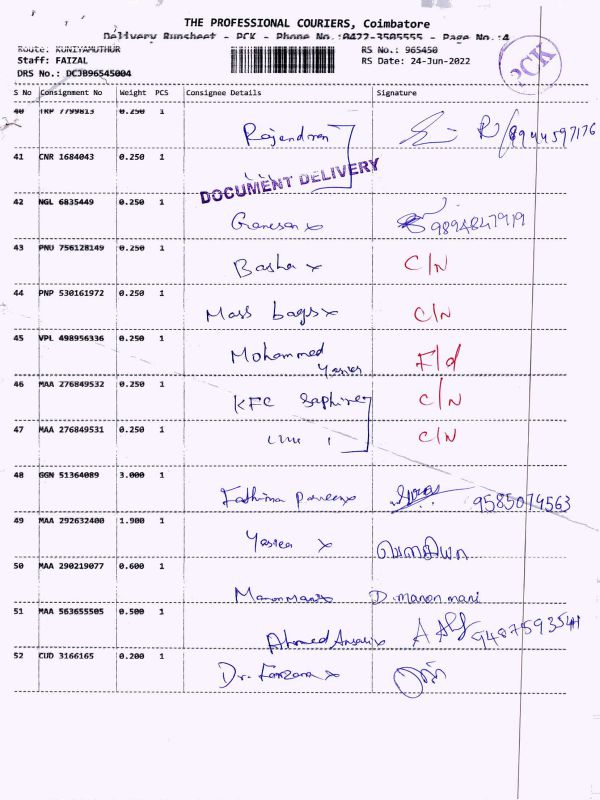 THE PROFESSIONAL COURIERS, Coimbatore
Delivery Runsheet - PCK - Phone No.:0422-3505555 - Page No.:4
Route: KUNIYAMUTHUR RS No.: 965450
Staff: FAIZAL RS Date: 24-Jun-2022
DRS No.: DCJB96545004
PCK
S No Consignment No Weight PCS Consignee Details Signature
40 TRP 7799813 0.250 1 Rajendran 9944597176
41 CNR 1684043 0.250 1
DOCUMENT DELIVERY
42 NGL 6835449 0.250 1 Ganesan 9894847919
43 PNU 756128149 0.250 1 Basha x C/N
44 PNP 530161972 0.250 1 Mass bags x C/N
45 VPL 498956336 0.250 1 Mohammed F/d
46 MAA 276849532 0.250 1 KFC Saphire C/N
47 MAA 276849531 0.250 1 C/N
48 GGN 51364089 3.000 1 Fathima Parveen x 9585074563
49 MAA 292632400 1.900 1 x
50 MAA 290219077 0.600 1 D. manon mani
51 MAA 563655505 0.500 1 Ahmed Ansari x
52 CUD 3166165 0.200 1 Dr. Farzana x